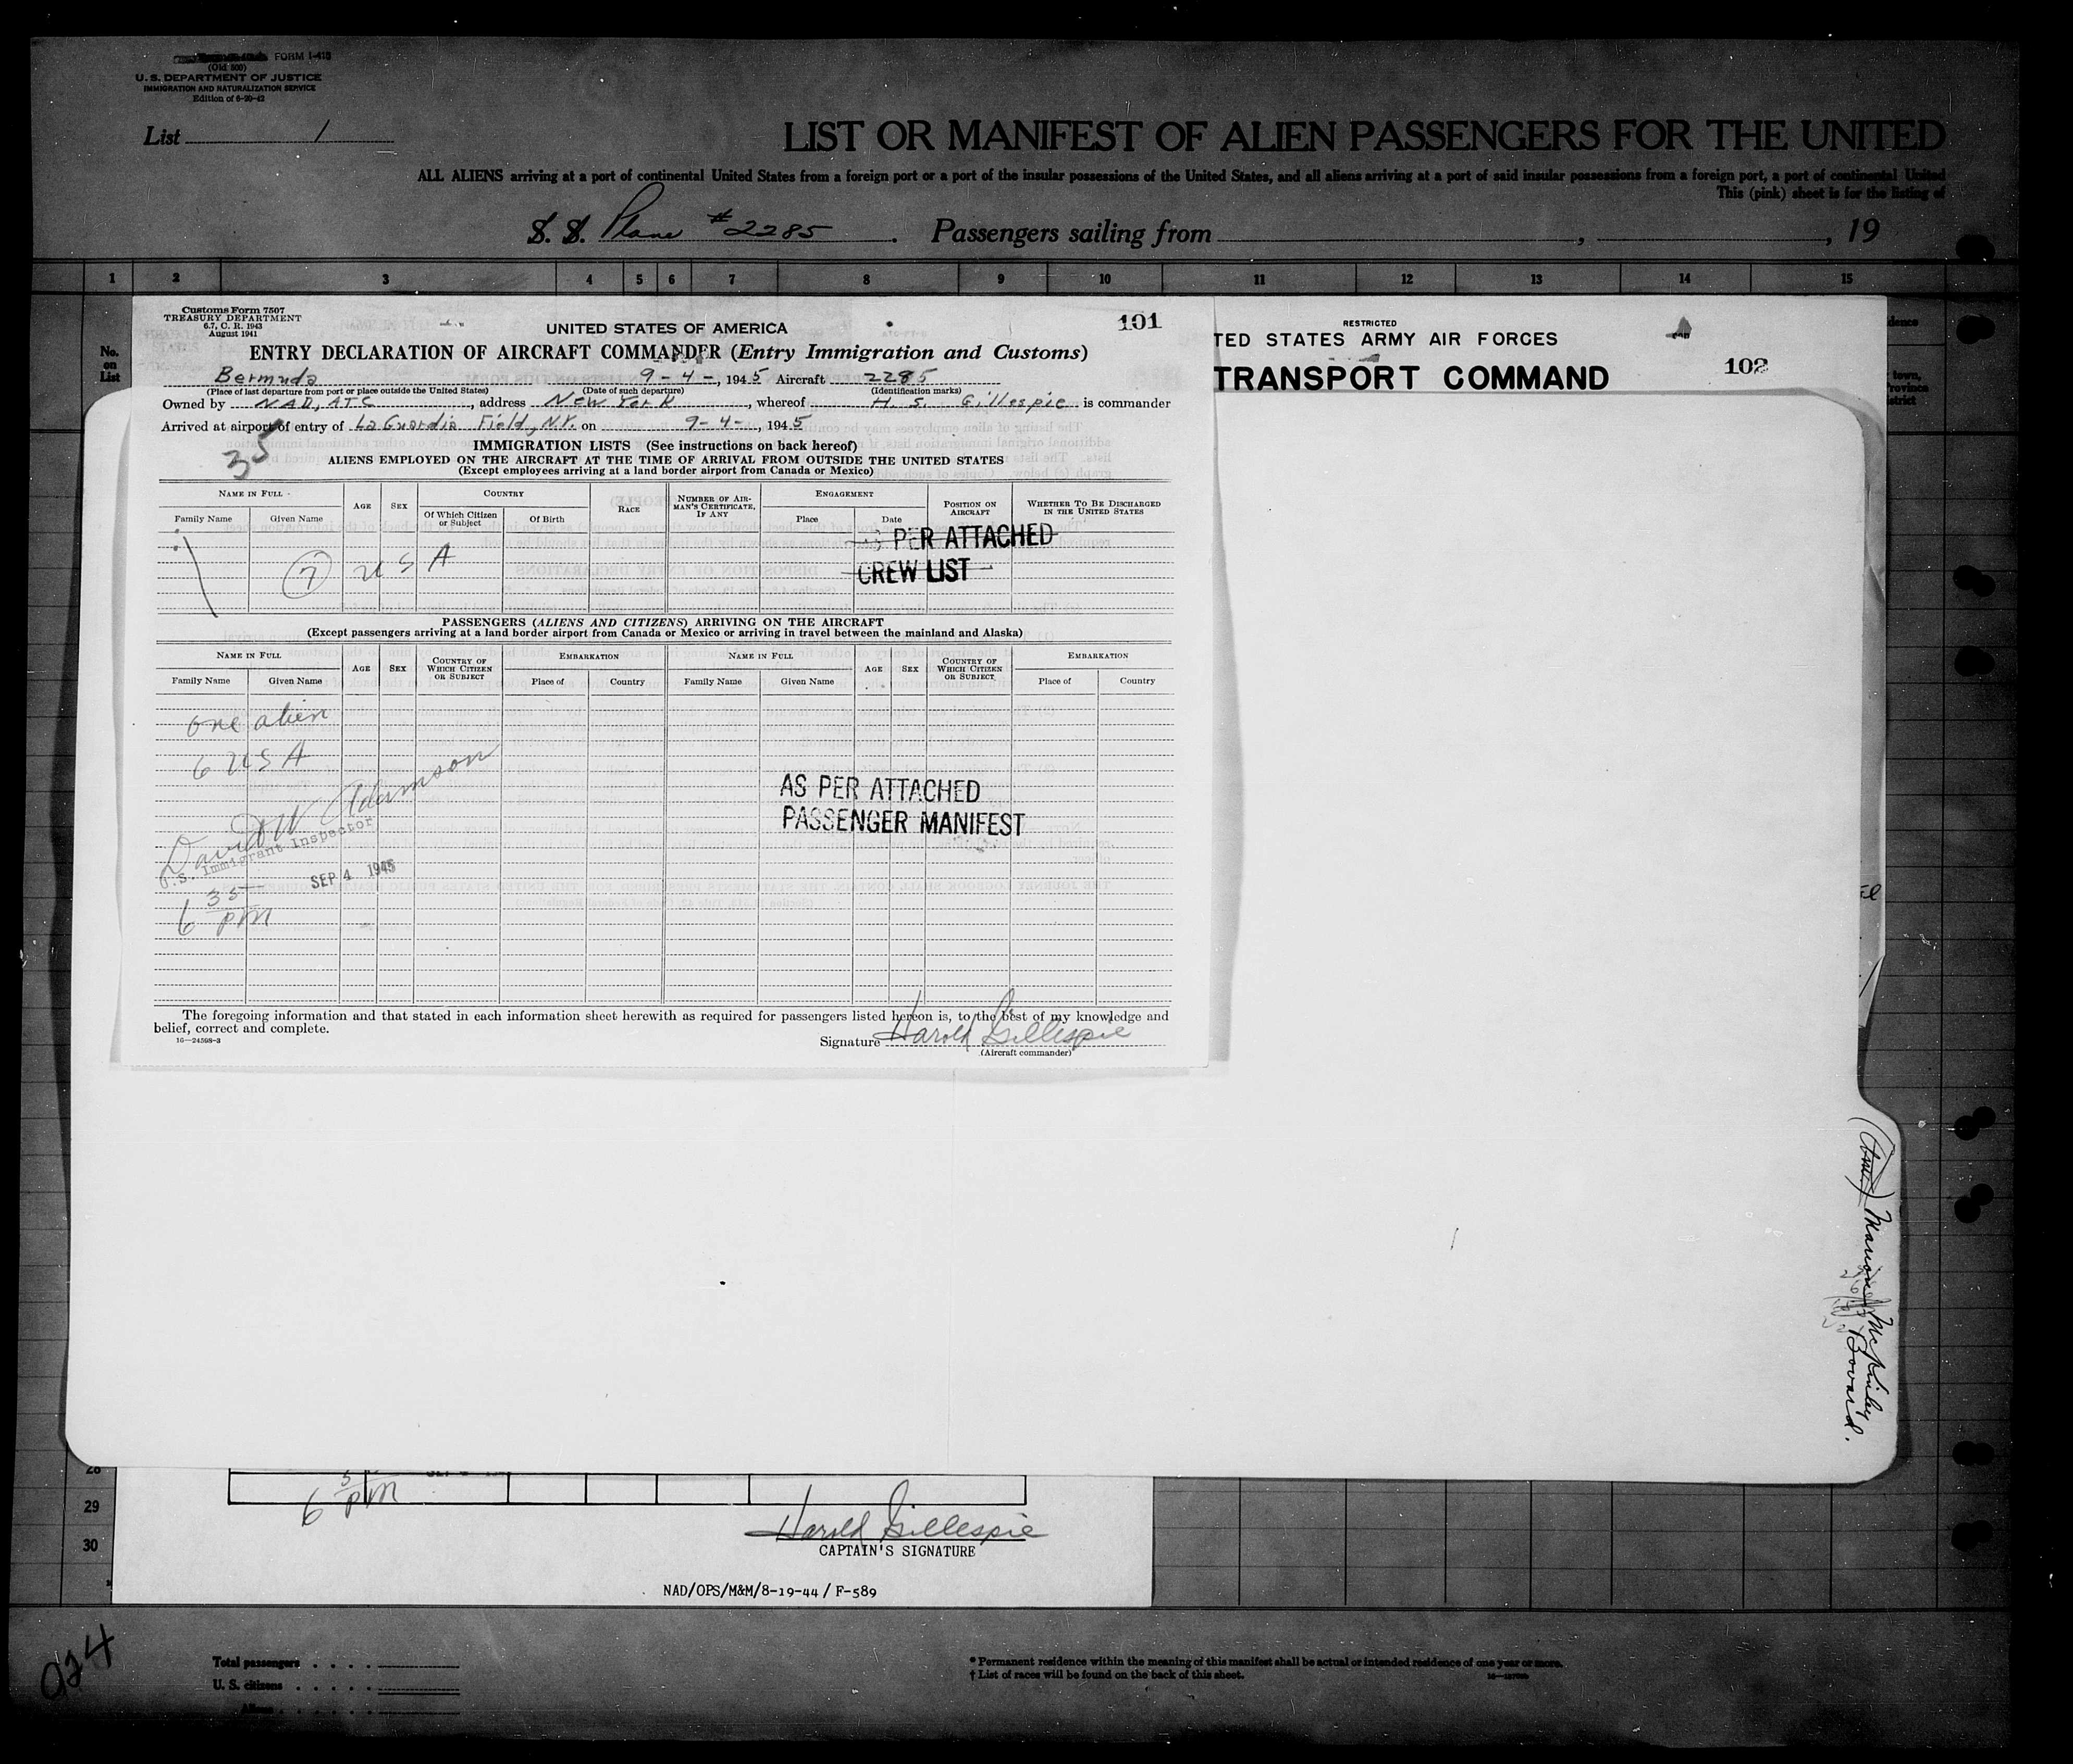 FORM I-415
(Old 500)
U. S. DEPARTMENT OF JUSTICE
IMMIGRATION AND NATURALIZATION SERVICE
Edition of 6-20-42
List 1
LIST OR MANIFEST OF ALIEN PASSENGERS FOR THE UNITED
ALL ALIENS arriving at a port of continental United States from a foreign port or a port of the insular possessions of the United States, and all aliens arriving at a port of said insular possessions from a foreign port, a port of continental United
This (pink) sheet is for the listing of
S. S. Plane #2285. Passengers sailing from , , 19
1 2 3 4 5 6 7 8 9 10 11 12 13 14 15
No. on List
Customs Form 7507
TREASURY DEPARTMENT
6.7, C. R. 1943
August 1941
UNITED STATES OF AMERICA
101
ENTRY DECLARATION OF AIRCRAFT COMMANDER (Entry Immigration and Customs)
Bermuda 9-4-, 1945 Aircraft 2285
(Place of last departure from port or place outside the United States) (Date of such departure) (Identification marks)
Owned by NAD, ATC, address New York, whereof H. S. Gillespie is commander
Arrived at airport of entry of LaGuardia Field, N.Y. on 9-4-, 1945
35
IMMIGRATION LISTS (See instructions on back hereof)
ALIENS EMPLOYED ON THE AIRCRAFT AT THE TIME OF ARRIVAL FROM OUTSIDE THE UNITED STATES
(Except employees arriving at a land border airport from Canada or Mexico)
NAME IN FULL AGE SEX COUNTRY RACE NUMBER OF AIRMAN'S CERTIFICATE, IF ANY ENGAGEMENT POSITION ON AIRCRAFT WHETHER TO BE DISCHARGED IN THE UNITED STATES
Family Name Given Name Of Which Citizen or Subject Of Birth Place Date
PER ATTACHED
CREW LIST
7 USA
PASSENGERS (ALIENS AND CITIZENS) ARRIVING ON THE AIRCRAFT
(Except passengers arriving at a land border airport from Canada or Mexico or arriving in travel between the mainland and Alaska)
NAME IN FULL AGE SEX COUNTRY OF WHICH CITIZEN OR SUBJECT EMBARKATION NAME IN FULL AGE SEX COUNTRY OF WHICH CITIZEN OR SUBJECT EMBARKATION
Family Name Given Name Place of Country Family Name Given Name Place of Country
one alien
6 USA
AS PER ATTACHED
PASSENGER MANIFEST
David W Adamson
U.S. Immigrant Inspector
SEP 4 1945
6 35 pm
The foregoing information and that stated in each information sheet herewith as required for passengers listed hereon is, to the best of my knowledge and
belief, correct and complete.
16-24598-3
Signature Harold Gillespie
(Aircraft commander)
RESTRICTED
TED STATES ARMY AIR FORCES
TRANSPORT COMMAND
102
Marion McKinley
Bovard.
28
29
30
6 pm
Harold Gillespie
CAPTAIN'S SIGNATURE
NAD/OPS/M&M/8-19-44 / F-589
924
Total passengers
U. S. citizens
Aliens
* Permanent residence within the meaning of this manifest shall be actual or intended residence of one year or more.
† List of races will be found on the back of this sheet.